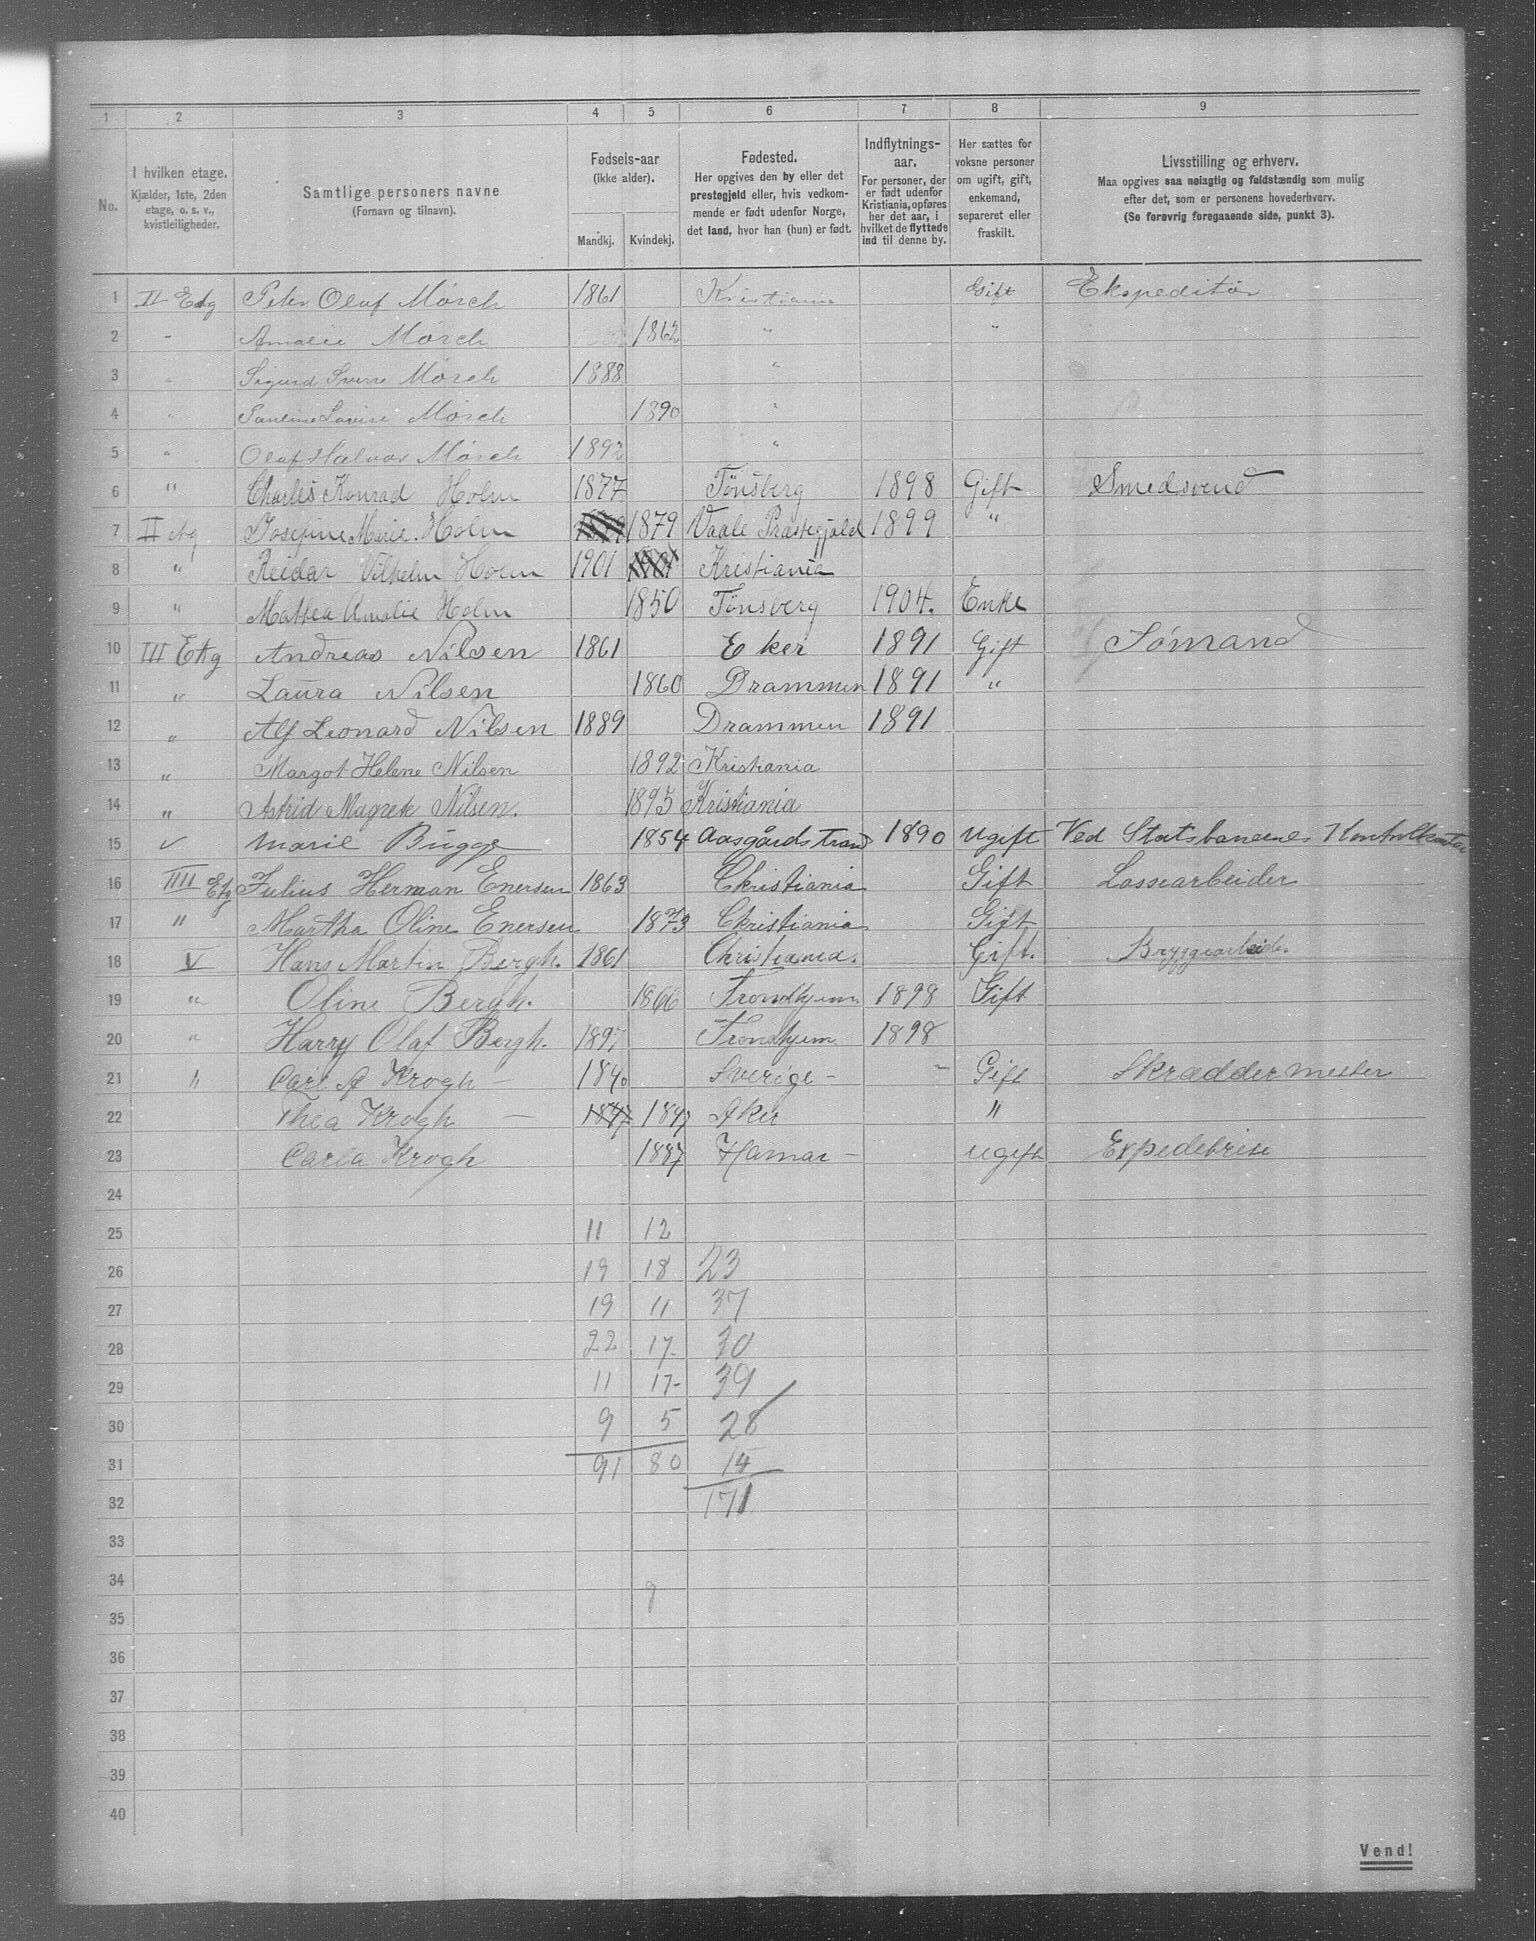 1 2 3 4 5 6 7 8 9
No.
I hvilken etage.
Kjælder, 1ste, 2den
etage, o. s. v.,
kvistleiligheder.
Samtlige personers navne
(Fornavn og tilnavn).
Fødsels-aar
(ikke alder).
Mandkj. Kvindekj.
Fødested.
Her opgives den by eller det
prestegjeld eller, hvis vedkom-
mende er født udenfor Norge,
det land, hvor han (hun) er født.
Indflytnings-
aar.
For personer, der
er født udenfor
Kristiania, opføres
her det aar, i
hvilket de flyttede
ind til denne by.
Her sættes for
voksne personer
om ugift, gift,
enkemand,
separeret eller
fraskilt.
Livsstilling og erhverv.
Maa opgives saa nøiagtig og fuldstændig som mulig
efter det, som er personens hovederhverv.
(Se forøvrig foregaaende side, punkt 3).
1 II Etg Peter Olaf Mörch 1861 Kristiania Gift Ekspeditör
2 " Amalie Mörch 1862 " "
3 " Sigurd Sverre Mörch 1888 "
4 " Pauline Lovise Mörch 1890 "
5 " Olaf Halvor Mörch 1892 "
6 " Charles Konrad Holm 1877 Tönsberg 1898 Gift Smedsvend
7 II etg Josefine Marie Holm 1879 Vaale Præstegjæld 1899 "
8 " Reidar Vilhelm Holm 1901 Kristiania
9 " Mathea Amalie Holm 1850 Tönsberg 1904. Enke
10 III Etg Andreas Nilsen 1861 Eker 1891 Gift Sömand
11 " Laura Nilsen 1860 Drammen 1891 "
12 " Alf Leonard Nilsen 1889 Drammen 1891
13 " Margot Helene Nilsen 1892 Kristiania
14 " Astrid Magrete Nilsen. 1895 Kristiania
15 Marie Bugge 1854 Aasgårdstrand 1890 ugift Ved Statsbanernes
16 IIII Etg Julius Herman Enersen 1863 Christiania Gift Lossearbeider
17 " Martha Oline Enersen 1873 Christiania Gift
18 V Hans Martin Bergh. 1861 Christiania. Gift. Bryggearbeider
19 " Oline Bergh. 1866 Trondhjem 1898 Gift
20 " Harry Olaf Bergh. 1897 Trondhjem 1898
21 " Carl A Krogh – 1840 Sverige – – Gift Skræddermester
22 Thea Krogh – 1847 1847 Aker "
23 Carla Krogh 1887 Hamar – ugift Expeditrise
24
25 11 12
26 19 18 23
27 19 11 37
28 22 17 30
29 11 17 39
30 9 5 28
31 91 80 14
32 171
33
34 9
35
36
37
38
39
40
Vend!